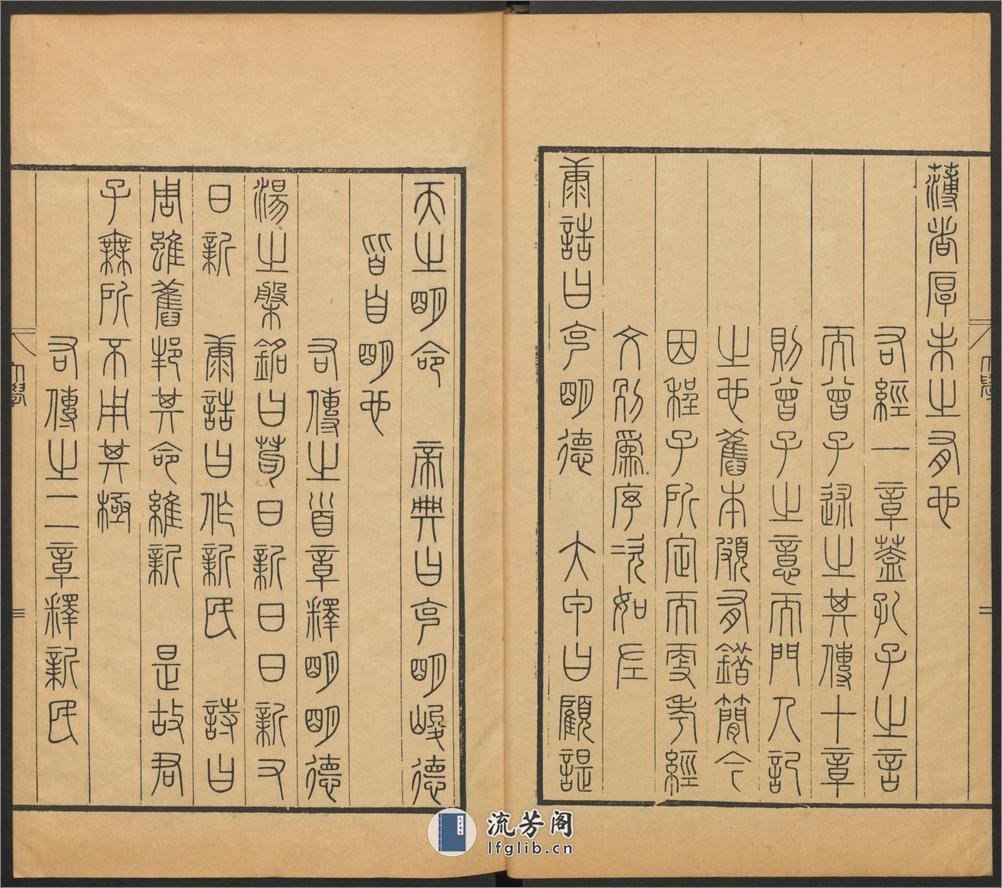 大學
二
薄者厚未之有也
右經一章蓋孔子之言
而曾子述之其傳十章
則曾子之意而門人記
之也舊本頗有錯簡今
因程子所定而更考經
文別爲序次如左
康誥曰克明德　大甲曰顧諟
天之明命　帝典曰克明峻德
皆自明也
右傳之首章釋明明德
湯之盤銘曰苟日新日日新又
日新　康誥曰作新民　詩曰
周雖舊邦其命維新　是故君
子無所不用其極
右傳之二章釋新民
大學
三
流芳阁
lfglib.cn